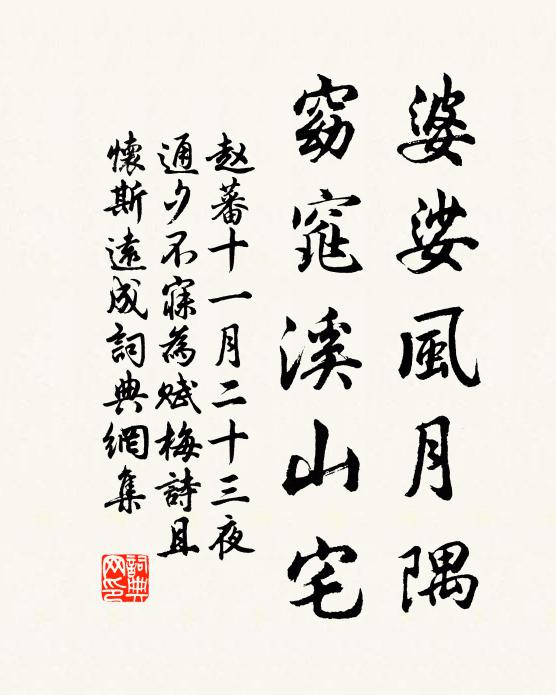 婆娑風月隅
窈窕溪山宅
赵蕃十一月二十三夜
通夕不寐為赋梅詩且
懷斯遠成詞典網集
詞典
网印